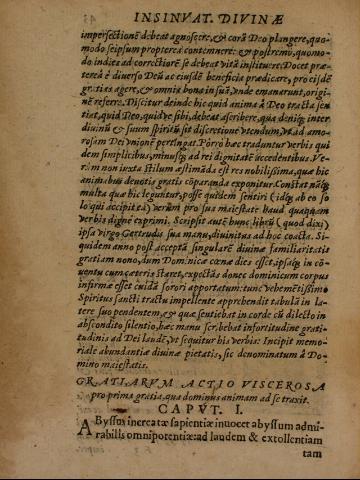 INSINVAT. DIVINÆ
imperfectionẽ debeat agnoscere, & corã Deo plangere, quo-
modo seipsum propterea contemnere: & postremũ, quomo-
do indies ad correctionẽ se debeat vitã instituere. Docet præ-
terea è diverso Deũ ac eiusdẽ beneficia prædicare, pro eisdẽ
gratias agere, & omnia bona in suã, vnde emanarunt, origi-
nẽ referre. Discitur deinde hic quid anima à Deo tracta sen-
tiat, quid Deo, quidve sibi, debeat ascribere, qua deniq; inter
divinũ & suum spiritũ sit discretione vtendum, vt ad amo-
rosam Dei vnionẽ pertingat. Porrò hæc traduntur verbis qui
dem simplicibus, minusq; ad rei dignitatẽ accedentibus. Ve-
rùm non iuxta stilum æstimãda est res nobilissima, quæ hic
animabus devotis gratis cõparanda exponitur. Constat nãq;
multa quæ hic leguntur, posse quidem sentiri (idq; ab eo so
lo qui accipit) verùm pro sua maiestate haud quaquam
verbis dignè exprimi. Scripsit autẽ hunc librũ (quod dixi)
ipsa virgo Gertrudis sua manu, divinitus ad hoc coacta. Si-
quidem anno post acceptã singularẽ divinæ familiaritatis
gratiam nono, dum Dominicæ cœnæ dies esset, ipsaq; in cõ-
ventu cum cæteris staret, expectãs donec dominicum corpus
infirmæ esset cuidã sorori apportatum: tunc vehemẽtissimo
Spiritus sancti tractu impellente apprehendit tabulã in la-
tere suo pendentem, & quæ sentiebat in corde cũ dilecto in
abscondito silentio, hæc manu scribebat in fortitudine grati-
tudinis ad Dei laudẽ, vt sequitur his verbis: Incipit memo-
riale abundantiæ divinæ pietatis, sic denominatum à Do-
mino maiestatis.
GRATIARVM ACTIO VISCEROSA
pro prima gratia, qua dominus animam ad se traxit.
CAPVT. I.
AByssus increatæ sapientiæ inuocet abyssum admi-
rabilis omnipotentiæ: ad laudem & extollentiam
tam